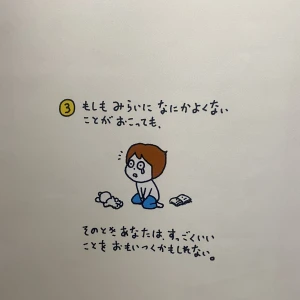 3 もしも みらいに なにかよくない
ことが おこっても、
そのとき あなたは、すっごくいい
ことを おもいつくかもしれない。